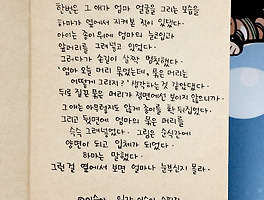 한번은 그 애가 엄마 얼굴을 그리는 모습을
하마가 옆에서 지켜본 적이 있었다.
아이는 종이 위에 엄마의 눈코입과
앞머리를 그려넣고 있었다.
그러다가 손길이 살짝 멈칫했다.
'엄마 오늘 머리 묶었는데, 묶은 머리는
어떻게 그리지?' 생각하는 것 같았다.
뒤로 질끈 묶은 머리가 정면에선 보이지 않으니까.
그 애는 아무렇지도 않게 종이를 휙 뒤집었다.
그리고 뒷면에 엄마의 묶은 머리를
슥슥 그려넣었다. 그림은 순식간에
양면이 되고 입체가 되었다.
하마는 말했다.
그런 걸 옆에서 보면 얼마나 눈부신지 몰라.